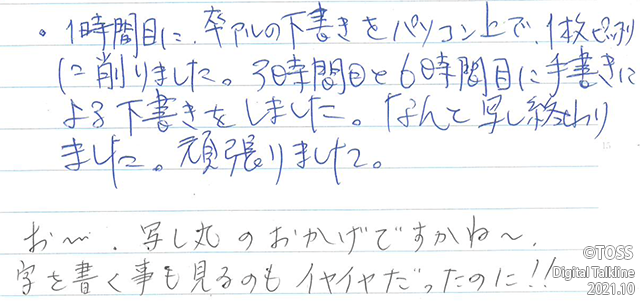 ・1時間目に、卒アルの下書きをパソコン上で、1枚ピッタリ
に削りました。3時間目と6時間目に手書きに
よる下書きをしました。なんと写し終わり
ました。頑張りました。
お〜、写し丸のおかげですかね〜、
字を書く事も見るのもイヤイヤだったのに!!
©TOSS
Digital Talkline
2021.10